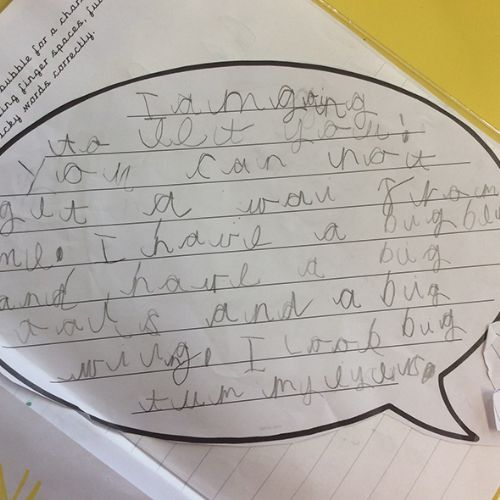 bubble for a char
ing finger spaces, ful
icky words correctly.
I am going
to eet you!
You can not
get a wai from
me. I have a big
and have a big
and a big
wing. I look big
my eyes.